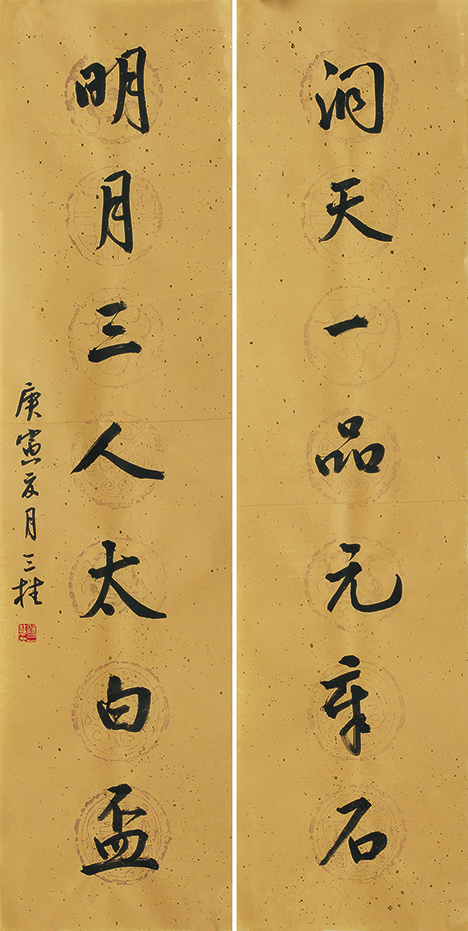 洞天一品元章石
明月三人太白盃
庚寅夏月三